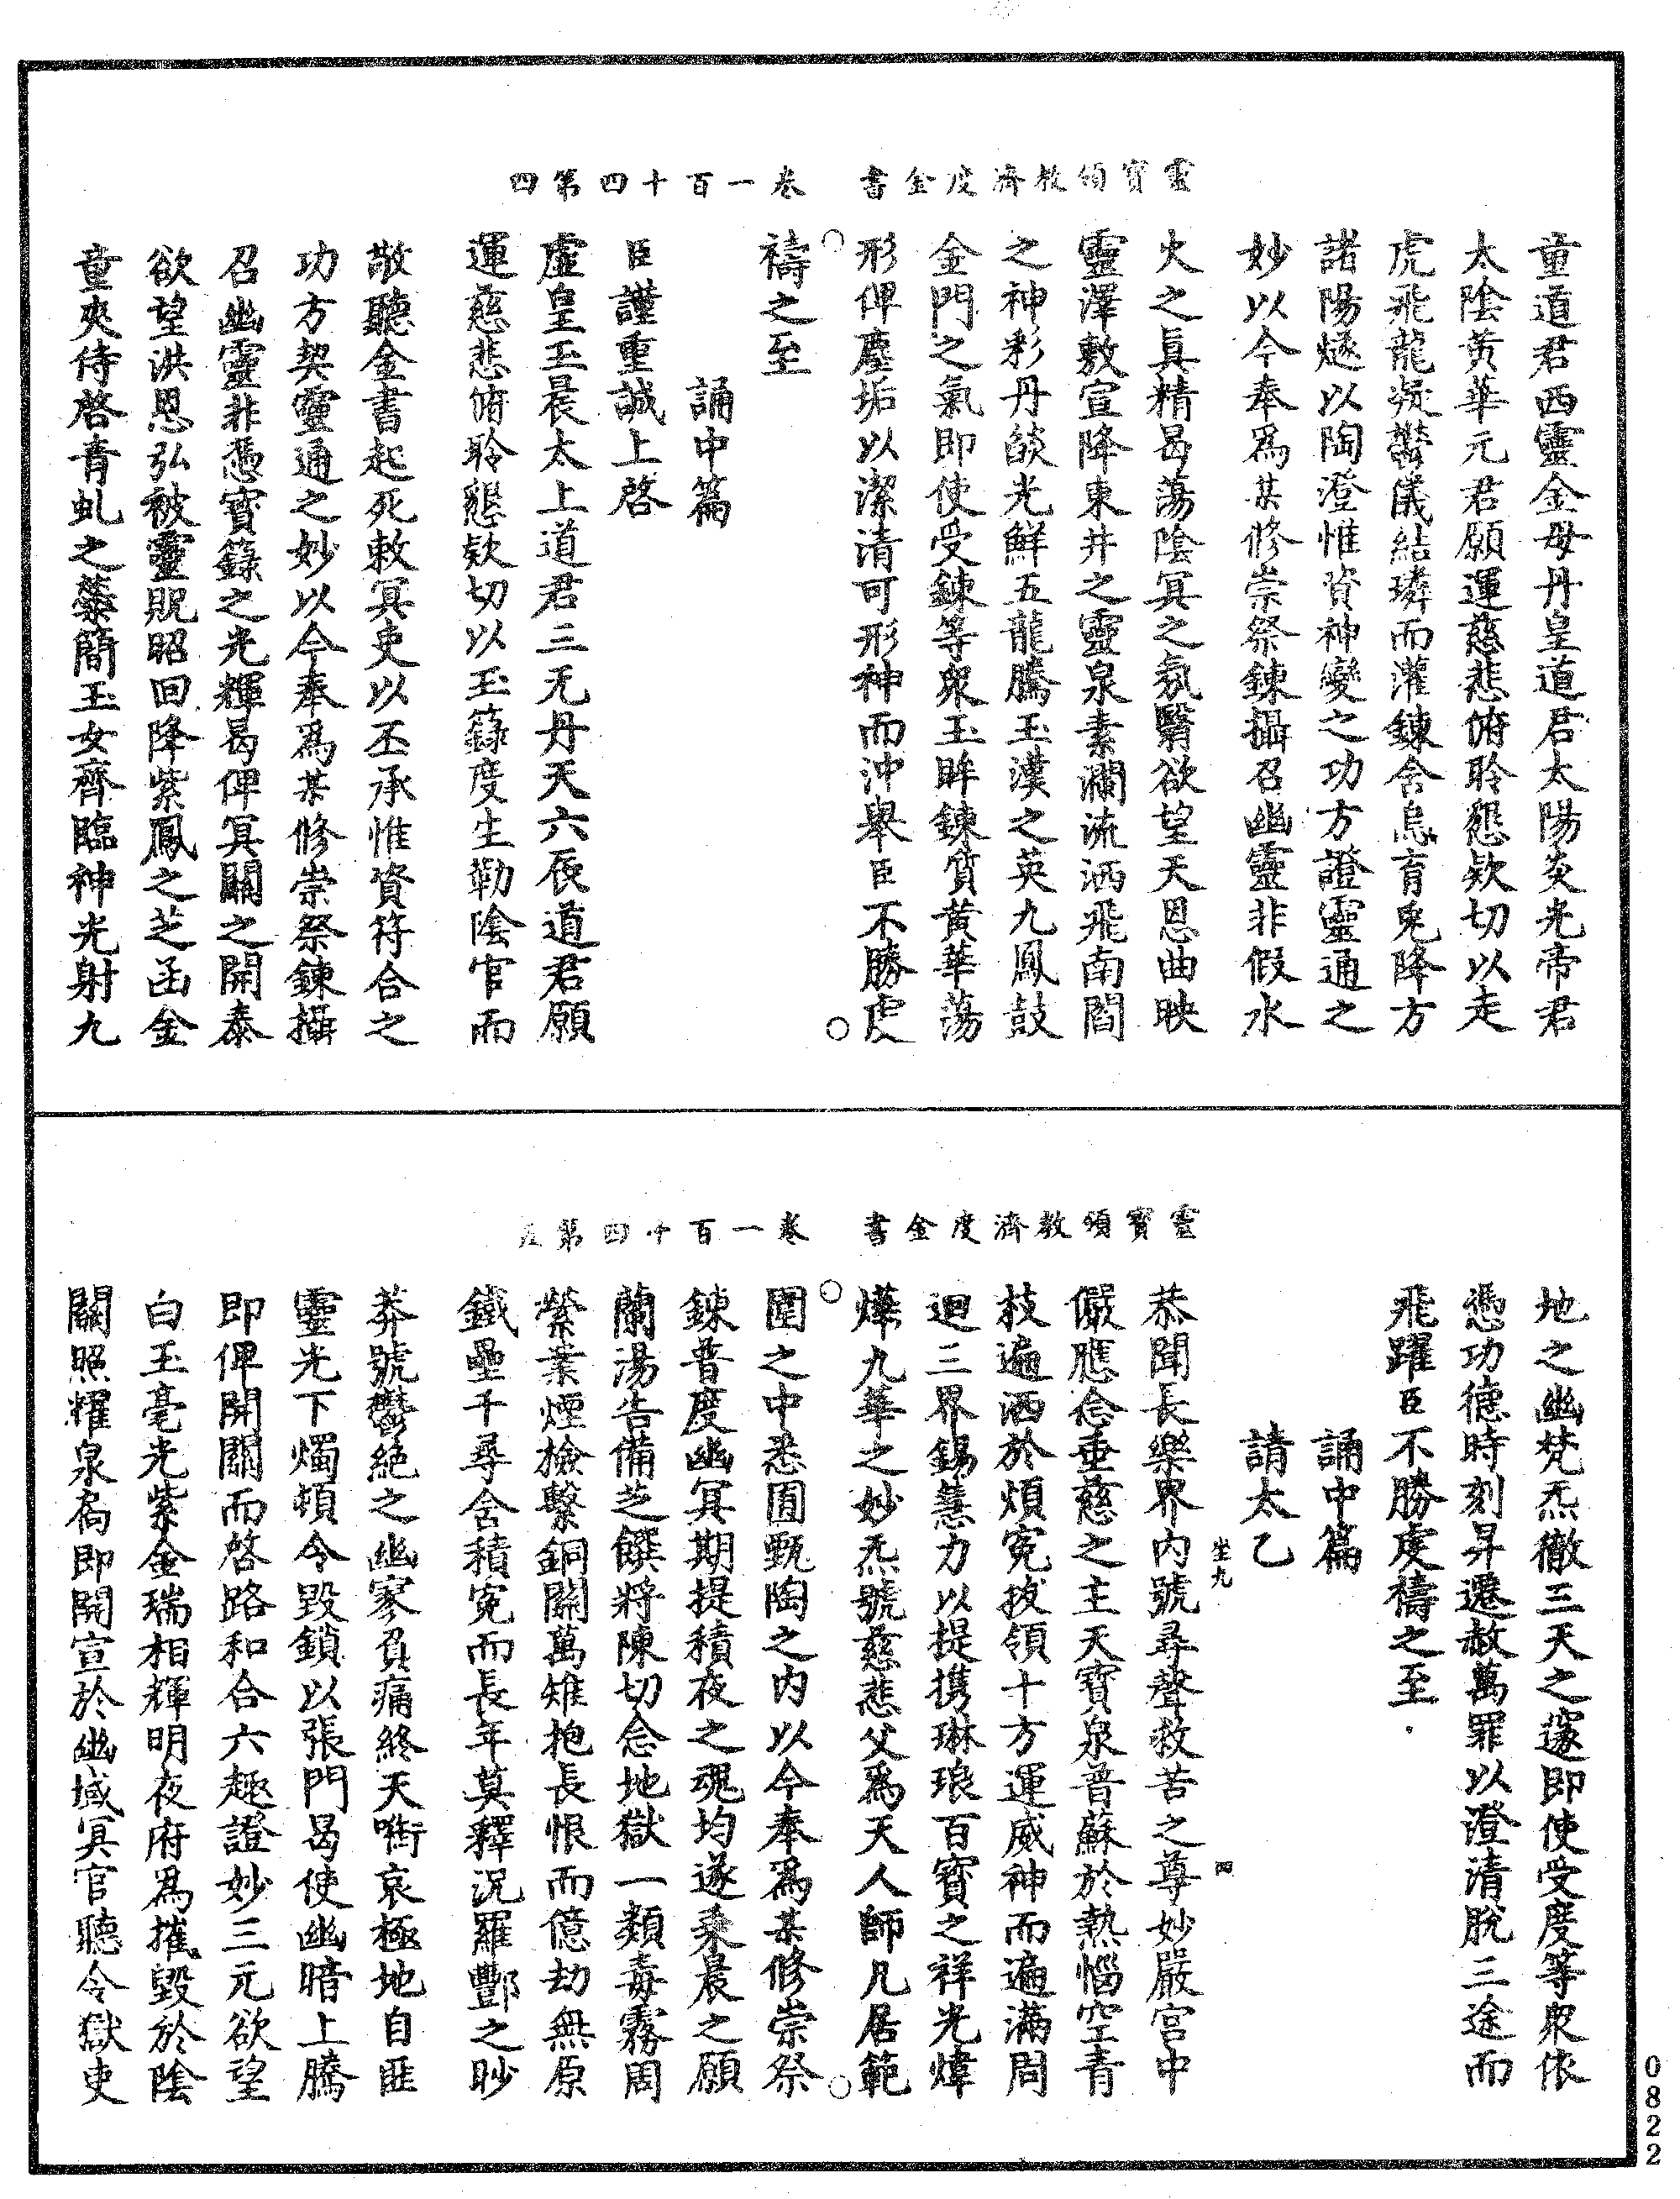 靈寶領教濟度金書　卷一百十四第四
童道君西靈金母丹皇道君太陽炎光帝君
太陰黃華元君願運慈悲俯聆懇欵切以走
虎飛龍凝欝儀結璘而灌鍊含烏育兎降方
諸陽燧以陶澄惟資神變之功方證靈通之
妙以今奉爲某修崇祭鍊攝召幽靈非假水
火之真精曷蕩陰冥之氛翳欲望天恩曲映
靈澤敷宣降東井之靈泉素瀾流洒飛南閻
之神彩丹燄光鮮五龍騰玉漢之英九鳳鼓
金門之氣即使受鍊等衆玉眸鍊質黃華蕩
形俾塵垢以潔清可形神而沖舉臣不勝虔
禱之至
誦中篇
臣謹重誠上啓
虛皇玉晨太上道君三元丹天六辰道君願
運慈悲俯聆懇欵切以玉籙度生勒陰官而
敬聽金書起死敕冥吏以丕承惟資符合之
功方契靈通之妙以今奉爲某修崇祭鍊攝
召幽靈非憑寶籙之光輝曷俾冥關之開泰
欲望洪恩弘被靈貺昭回降紫鳳之芝函金
童夾侍啓青虬之蘂簡玉女齊臨神光射九
靈寶領教濟度金書　卷一百十四第五
地之幽梵炁徹三天之邃即使受度等衆依
憑功德時刻昇遷赦萬罪以澄清脫三途而
飛躍臣不勝虔禱之至
誦中篇
請太乙
坐九　四
恭聞長樂界內號尋聲救苦之尊妙嚴宮中
儼應念垂慈之主天寶泉普蘇於熱惱空青
枝遍洒於煩冤拔領十方運威神而遍滿周
迴三界錫慧力以提携琳琅百寶之祥光煒
燁九華之妙炁號慈悲父爲天人師凡居範
圍之中悉囿甄陶之內以今奉爲某修崇祭
鍊普度幽冥期提積夜之魂均遂乘晨之願
蘭湯告備芝饌將陳切念地獄一類毒霧周
縈業煙撿繫銅關萬雉抱長恨而億劫無原
鐵壘千尋含積冤而長年莫釋況羅酆之眇
莽號欝絕之幽寥負痛終天啣哀極地自匪
靈光下燭頓令毀鎖以張門曷使幽暗上騰
即俾開關而啓路和合六趣證妙三元欲望
白玉毫光紫金瑞相輝明夜府爲摧毀於陰
關照耀泉扃即開宣於幽域冥官聽令獄吏
0822